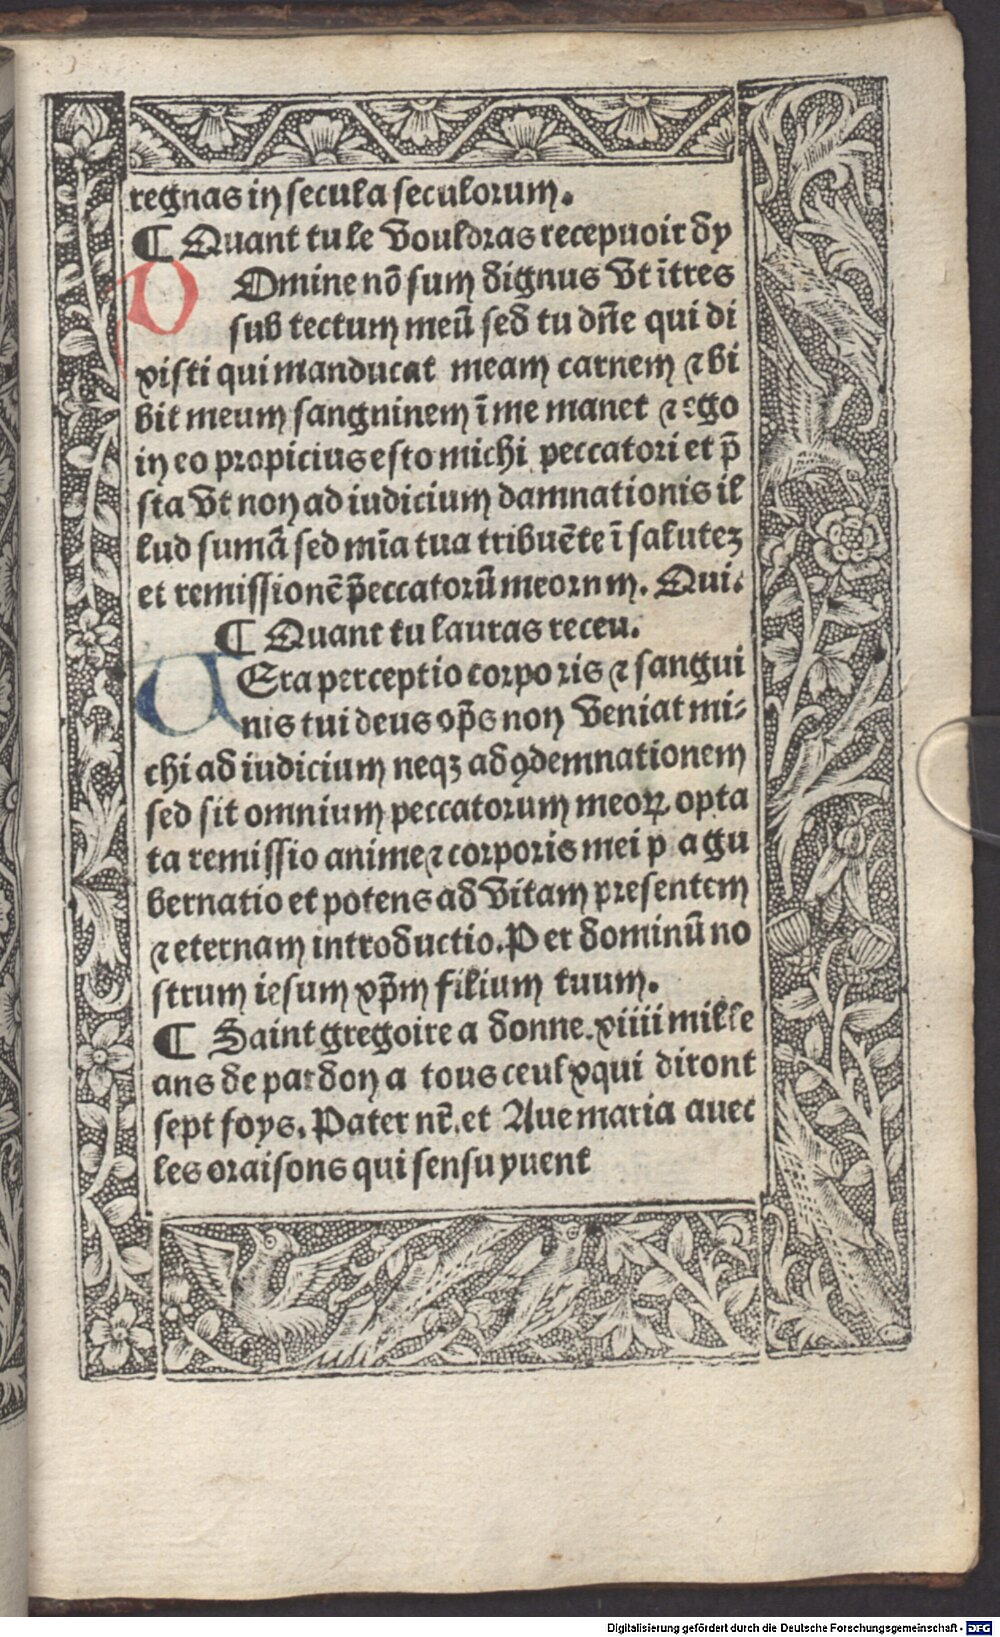 regnas in secula seculorum.
¶ Quant tu le vouldras recepuoir dy
D Omine nõ sum dignus vt ĩtres
sub tectum meũ sed tu dñe qui di
xisti qui manducat meam carnem ⁊ bi
bit meum sangninem ĩ me manet ⁊ ego
in eo propicius esto michi peccatori et p̃
sta vt non ad iudicium damnationis il
lud sumã sed mĩa tua tribuẽte ĩ salutez
et remissionẽ p̃eccatorũ meornm. Qui.
¶ Quant tu lauras receu.
U Era perceptio corporis ⁊ sangui
nis tui deus op̃s non veniat mi⸗
chi ad iudicium neqꝫ ad ꝯdemnationem
sed sit omnium peccatorum meoꝝ opta
ta remissio anime ⁊ corporis mei p a gu
bernatio et potens ad vitam presentem
⁊ eternam introductio. Per dominũ no
strum iesum xp̃m filium tuum.
¶ Saint gregoire a donne. xiiii mille
ans de pardon a tous ceulx qui diront
sept foys. Pater nr̃. et Aue maria auec
les oraisons qui sensuyuent
Digitalisierung gefördert durch die Deutsche Forschungsgemeinschaft - DFG